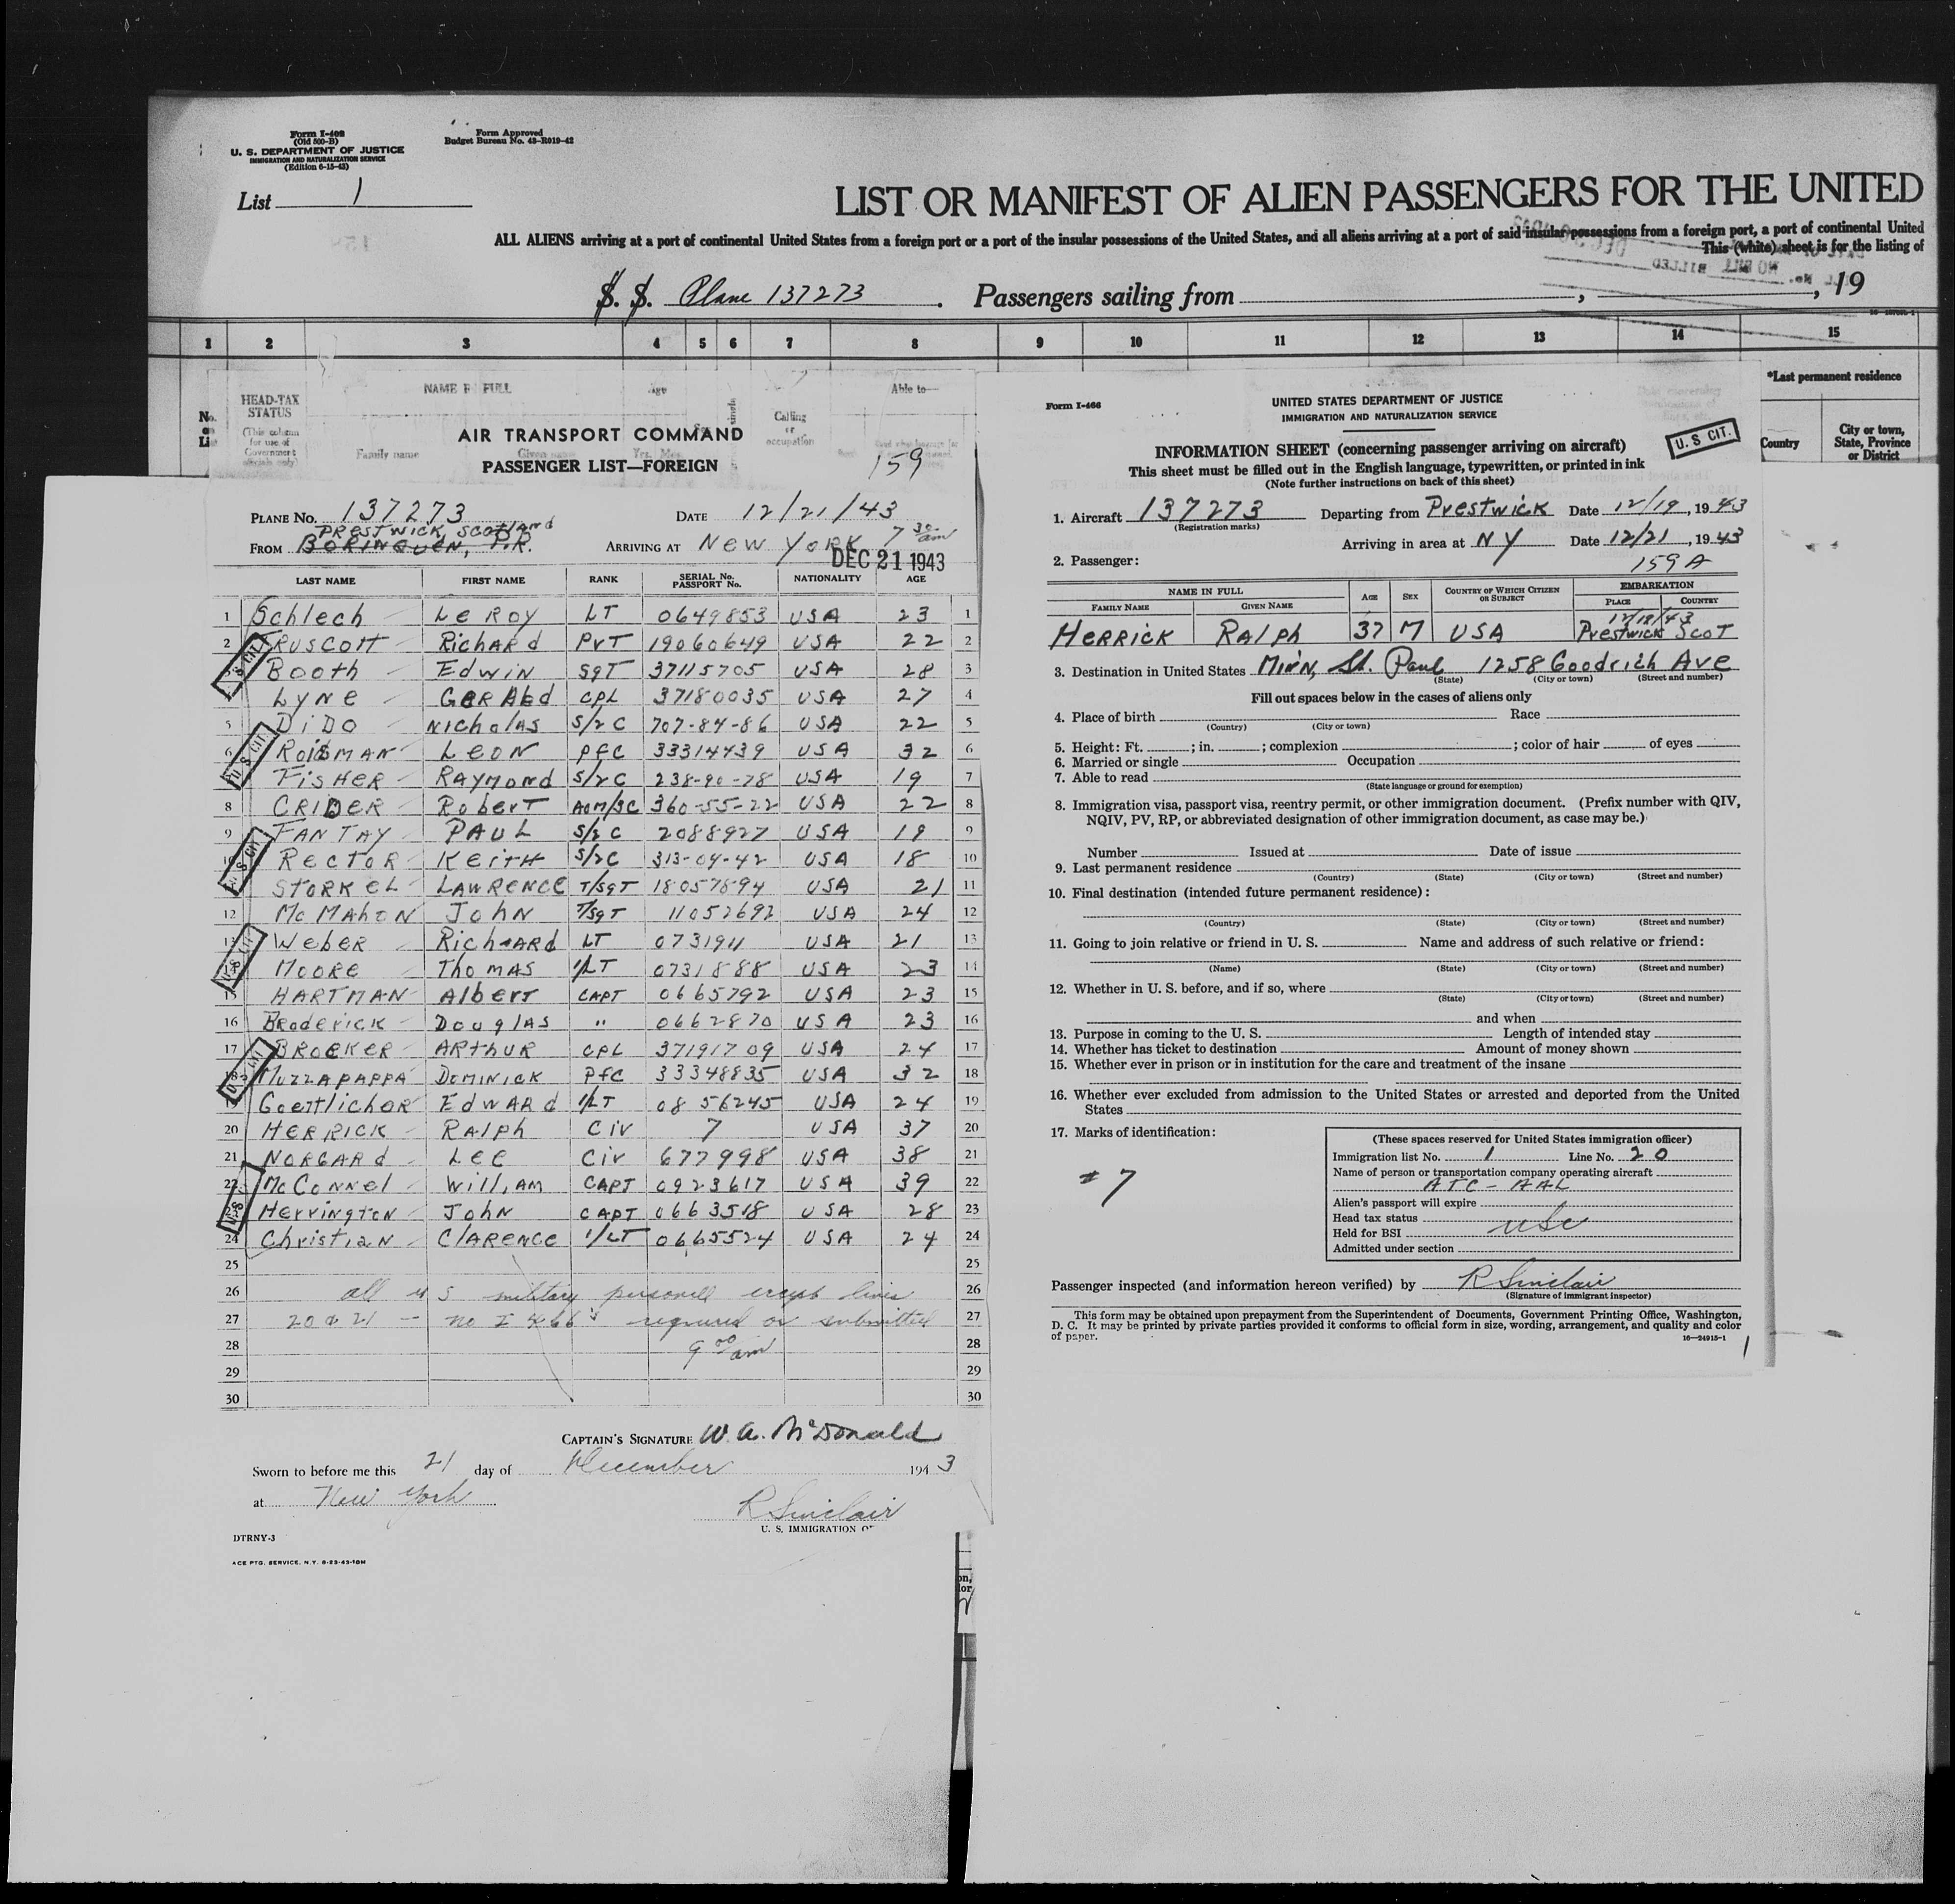 Form I-409
(Old 500-B)
U. S. DEPARTMENT OF JUSTICE
IMMIGRATION AND NATURALIZATION SERVICE
(Edition 6-15-43)
Form Approved
Budget Bureau No. 43-R019-42
List 1
LIST OR MANIFEST OF ALIEN PASSENGERS FOR THE UNITED
ALL ALIENS arriving at a port of continental United States from a foreign port or a port of the insular possessions of the United States, and all aliens arriving at a port of said insular possessions from a foreign port, a port of continental United
This (white) sheet is for the listing of
S. S. Plane 137273. Passengers sailing from , , 19
1 2 3 4 5 6 7 8 9 10 11 12 13 14 15
HEAD-TAX STATUS
(This column for use of Government officials only)
NAME FULL
Family name
Age
Calling or occupation
Able to—
*Last permanent residence
Country
City or town, State, Province or District
AIR TRANSPORT COMMAND
PASSENGER LIST—FOREIGN
159
PLANE No. 137273 DATE 12/21/43
PRESTWICK, SCOTLAND 7 30 am
FROM BORINQUEN, P.R. ARRIVING AT NEW YORK
DEC 21 1943
LAST NAME FIRST NAME RANK SERIAL No. PASSPORT No. NATIONALITY AGE
1 Schlech LeRoy LT 0649853 USA 23 1
2 TRUSCOTT RichARd PVT 19060649 USA 22 2
Booth Edwin SGT 37115705 USA 28 3
LYNE GERAld CPL 37180035 USA 27 4
5 DiDO NicholAS S/2C 707-84-86 USA 22 5
6 ROISMAN LEON PFC 33314439 USA 32 6
FISHER RAYMOND S/2C 238-90-78 USA 19 7
8 CRIDER RobeRT AOM/3C 360-55-22 USA 22 8
9 FANTAY PAUL S/2C 2088927 USA 19 9
10 RECTOR KEITH S/2C 313-04-42 USA 18 10
STORKEL LAWRENCE T/SGT 18057894 USA 21 11
12 McMAHON JOHN T/SGT 11052692 USA 24 12
13 WEBER RichARD LT 0731911 USA 21 13
14 MOORE ThoMAS 1/LT 0731888 USA 23 14
15 HARTMAN AlbeRT CAPT 0665792 USA 23 15
16 BRoderick DouglAS " 0662870 USA 23 16
17 BROEKER ARthUR CPL 37191709 USA 24 17
18 MUZZAPAPPA DOMINICK PFC 33348835 USA 32 18
19 Goertlichor EdwARd 1/LT 0856245 USA 24 19
20 HERRICK RALPH CIV 7 USA 37 20
21 NORGARd LEE CIV 677998 USA 38 21
22 McCONNEl WilliAM CAPT 0923617 USA 39 22
23 HerringTON JOHN CAPT 0663518 USA 28 23
24 ChristiAN ClARENCE 1/LT 0665524 USA 24 24
25 25
26 all U S military personell except lines 26
27 20 & 21 — no I 466's required or submitted 27
28 9 00 am 28
29 29
30 30
CAPTAIN'S SIGNATURE W. A. McDonald
Sworn to before me this 21 day of December 1943
at New York R Sinclair
U. S. IMMIGRATION
DTRNY-3
ACE PTG. SERVICE, N.Y. 6-23-43-10M
Form I-466
UNITED STATES DEPARTMENT OF JUSTICE
IMMIGRATION AND NATURALIZATION SERVICE
U. S CIT.
INFORMATION SHEET (concerning passenger arriving on aircraft)
This sheet must be filled out in the English language, typewritten, or printed in ink
(Note further instructions on back of this sheet)
1. Aircraft 137273 Departing from Prestwick Date 12/19, 1943
(Registration marks)
Arriving in area at NY Date 12/21, 1943
2. Passenger: 159A
NAME IN FULL AGE SEX COUNTRY OF WHICH CITIZEN OR SUBJECT EMBARKATION
FAMILY NAME GIVEN NAME PLACE COUNTRY
12/19/43
HERRICK RAlph 37 M USA Prestwick SCOT
3. Destination in United States Minn, St. Paul 1258 Goodrich Ave
(State) (City or town) (Street and number)
Fill out spaces below in the cases of aliens only
4. Place of birth Race
(Country) (City or town)
5. Height: Ft. ; in. ; complexion ; color of hair of eyes
6. Married or single Occupation
7. Able to read
(State language or ground for exemption)
8. Immigration visa, passport visa, reentry permit, or other immigration document. (Prefix number with QIV,
NQIV, PV, RP, or abbreviated designation of other immigration document, as case may be.)
Number Issued at Date of issue
9. Last permanent residence
(Country) (State) (City or town) (Street and number)
10. Final destination (intended future permanent residence):
(Country) (State) (City or town) (Street and number)
11. Going to join relative or friend in U. S. Name and address of such relative or friend:
(Name) (State) (City or town) (Street and number)
12. Whether in U. S. before, and if so, where
(State) (City or town) (Street and number)
and when
13. Purpose in coming to the U. S. Length of intended stay
14. Whether has ticket to destination Amount of money shown
15. Whether ever in prison or in institution for the care and treatment of the insane
16. Whether ever excluded from admission to the United States or arrested and deported from the United
States
17. Marks of identification:
#7
(These spaces reserved for United States immigration officer)
Immigration list No. 1 Line No. 20
Name of person or transportation company operating aircraft
ATC - AAL
Alien's passport will expire
Head tax status USC
Held for BSI
Admitted under section
Passenger inspected (and information hereon verified) by R Sinclair
(Signature of immigrant inspector)
This form may be obtained upon prepayment from the Superintendent of Documents, Government Printing Office, Washington,
D. C. It may be printed by private parties provided it conforms to official form in size, wording, arrangement, and quality and color
of paper. 16—24915-1